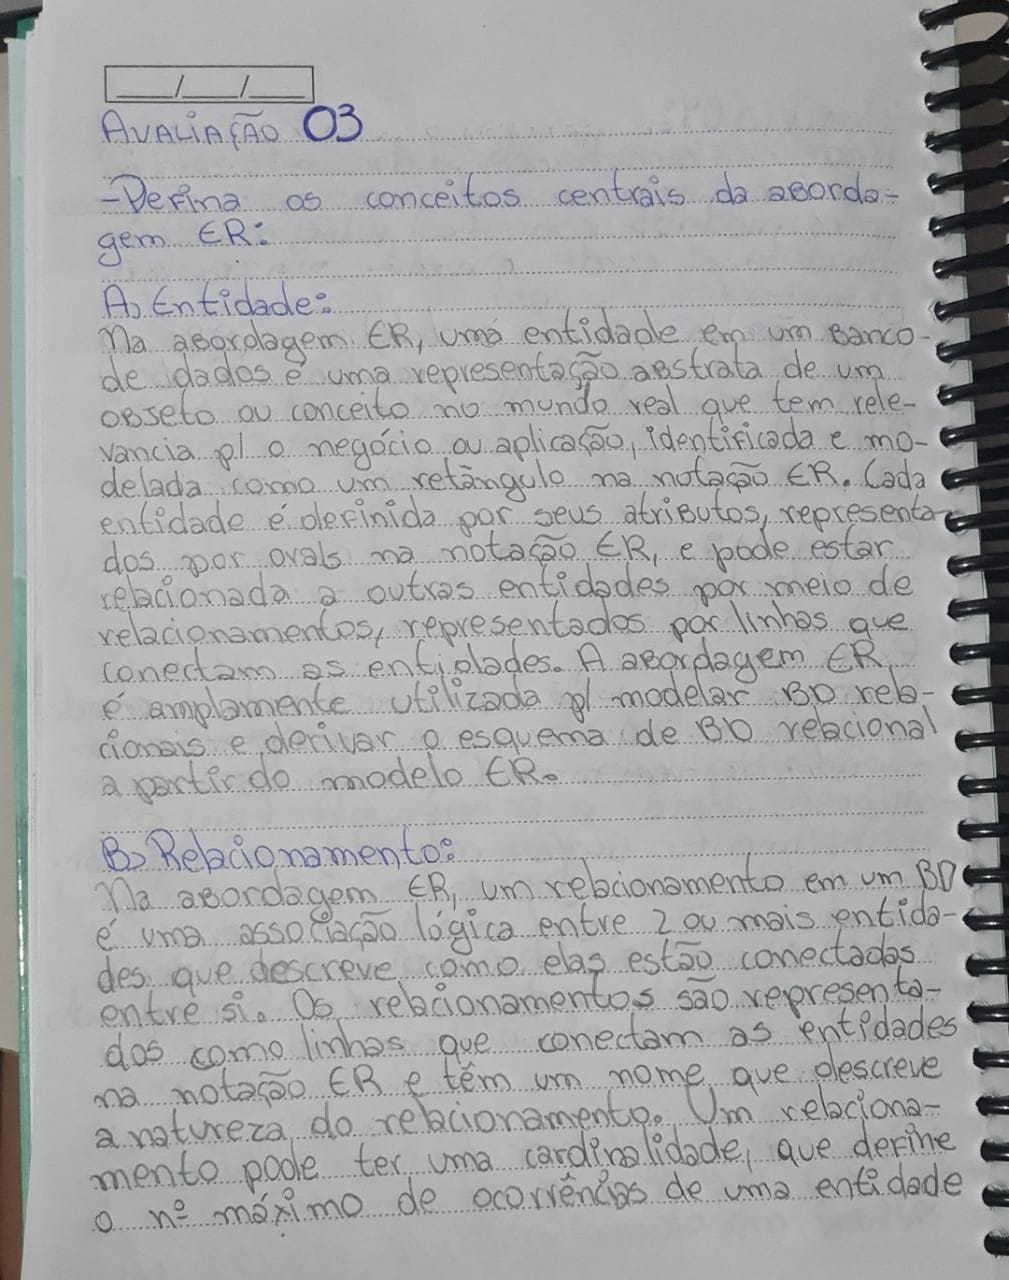 ___/___/___
AVALIAÇÃO 03
-Defina os conceitos centrais da aborda-
gem ER:
A) Entidade:
Na abordagem ER, uma entidade em um banco
de dados é uma representação abstrata de um
objeto ou conceito no mundo real que tem rele-
vancia p/ o negócio ou aplicação, identificada e mo-
delada como um retângulo na notação ER. Cada
entidade é definida por seus atributos, representa-
dos por ovals na notação ER, e pode estar
relacionada a outras entidades por meio de
relacionamentos, representados por linhas que
conectam as entidades. A abordagem ER
é amplamente utilizada p/ modelar BD rela-
cionais e derivar o esquema de BD relacional
a partir do modelo ER.
B) Relacionamento:
Na abordagem ER, um relacionamento em um BD
é uma associação lógica entre 2 ou mais entida-
des que descreve como elas estão conectadas
entre si. Os relacionamentos são representa-
dos como linhas que conectam as entidades
na notação ER e têm um nome que descreve
a natureza do relacionamento. Um relaciona-
mento pode ter uma cardinalidade, que define
o nº máximo de ocorrências de uma entidade